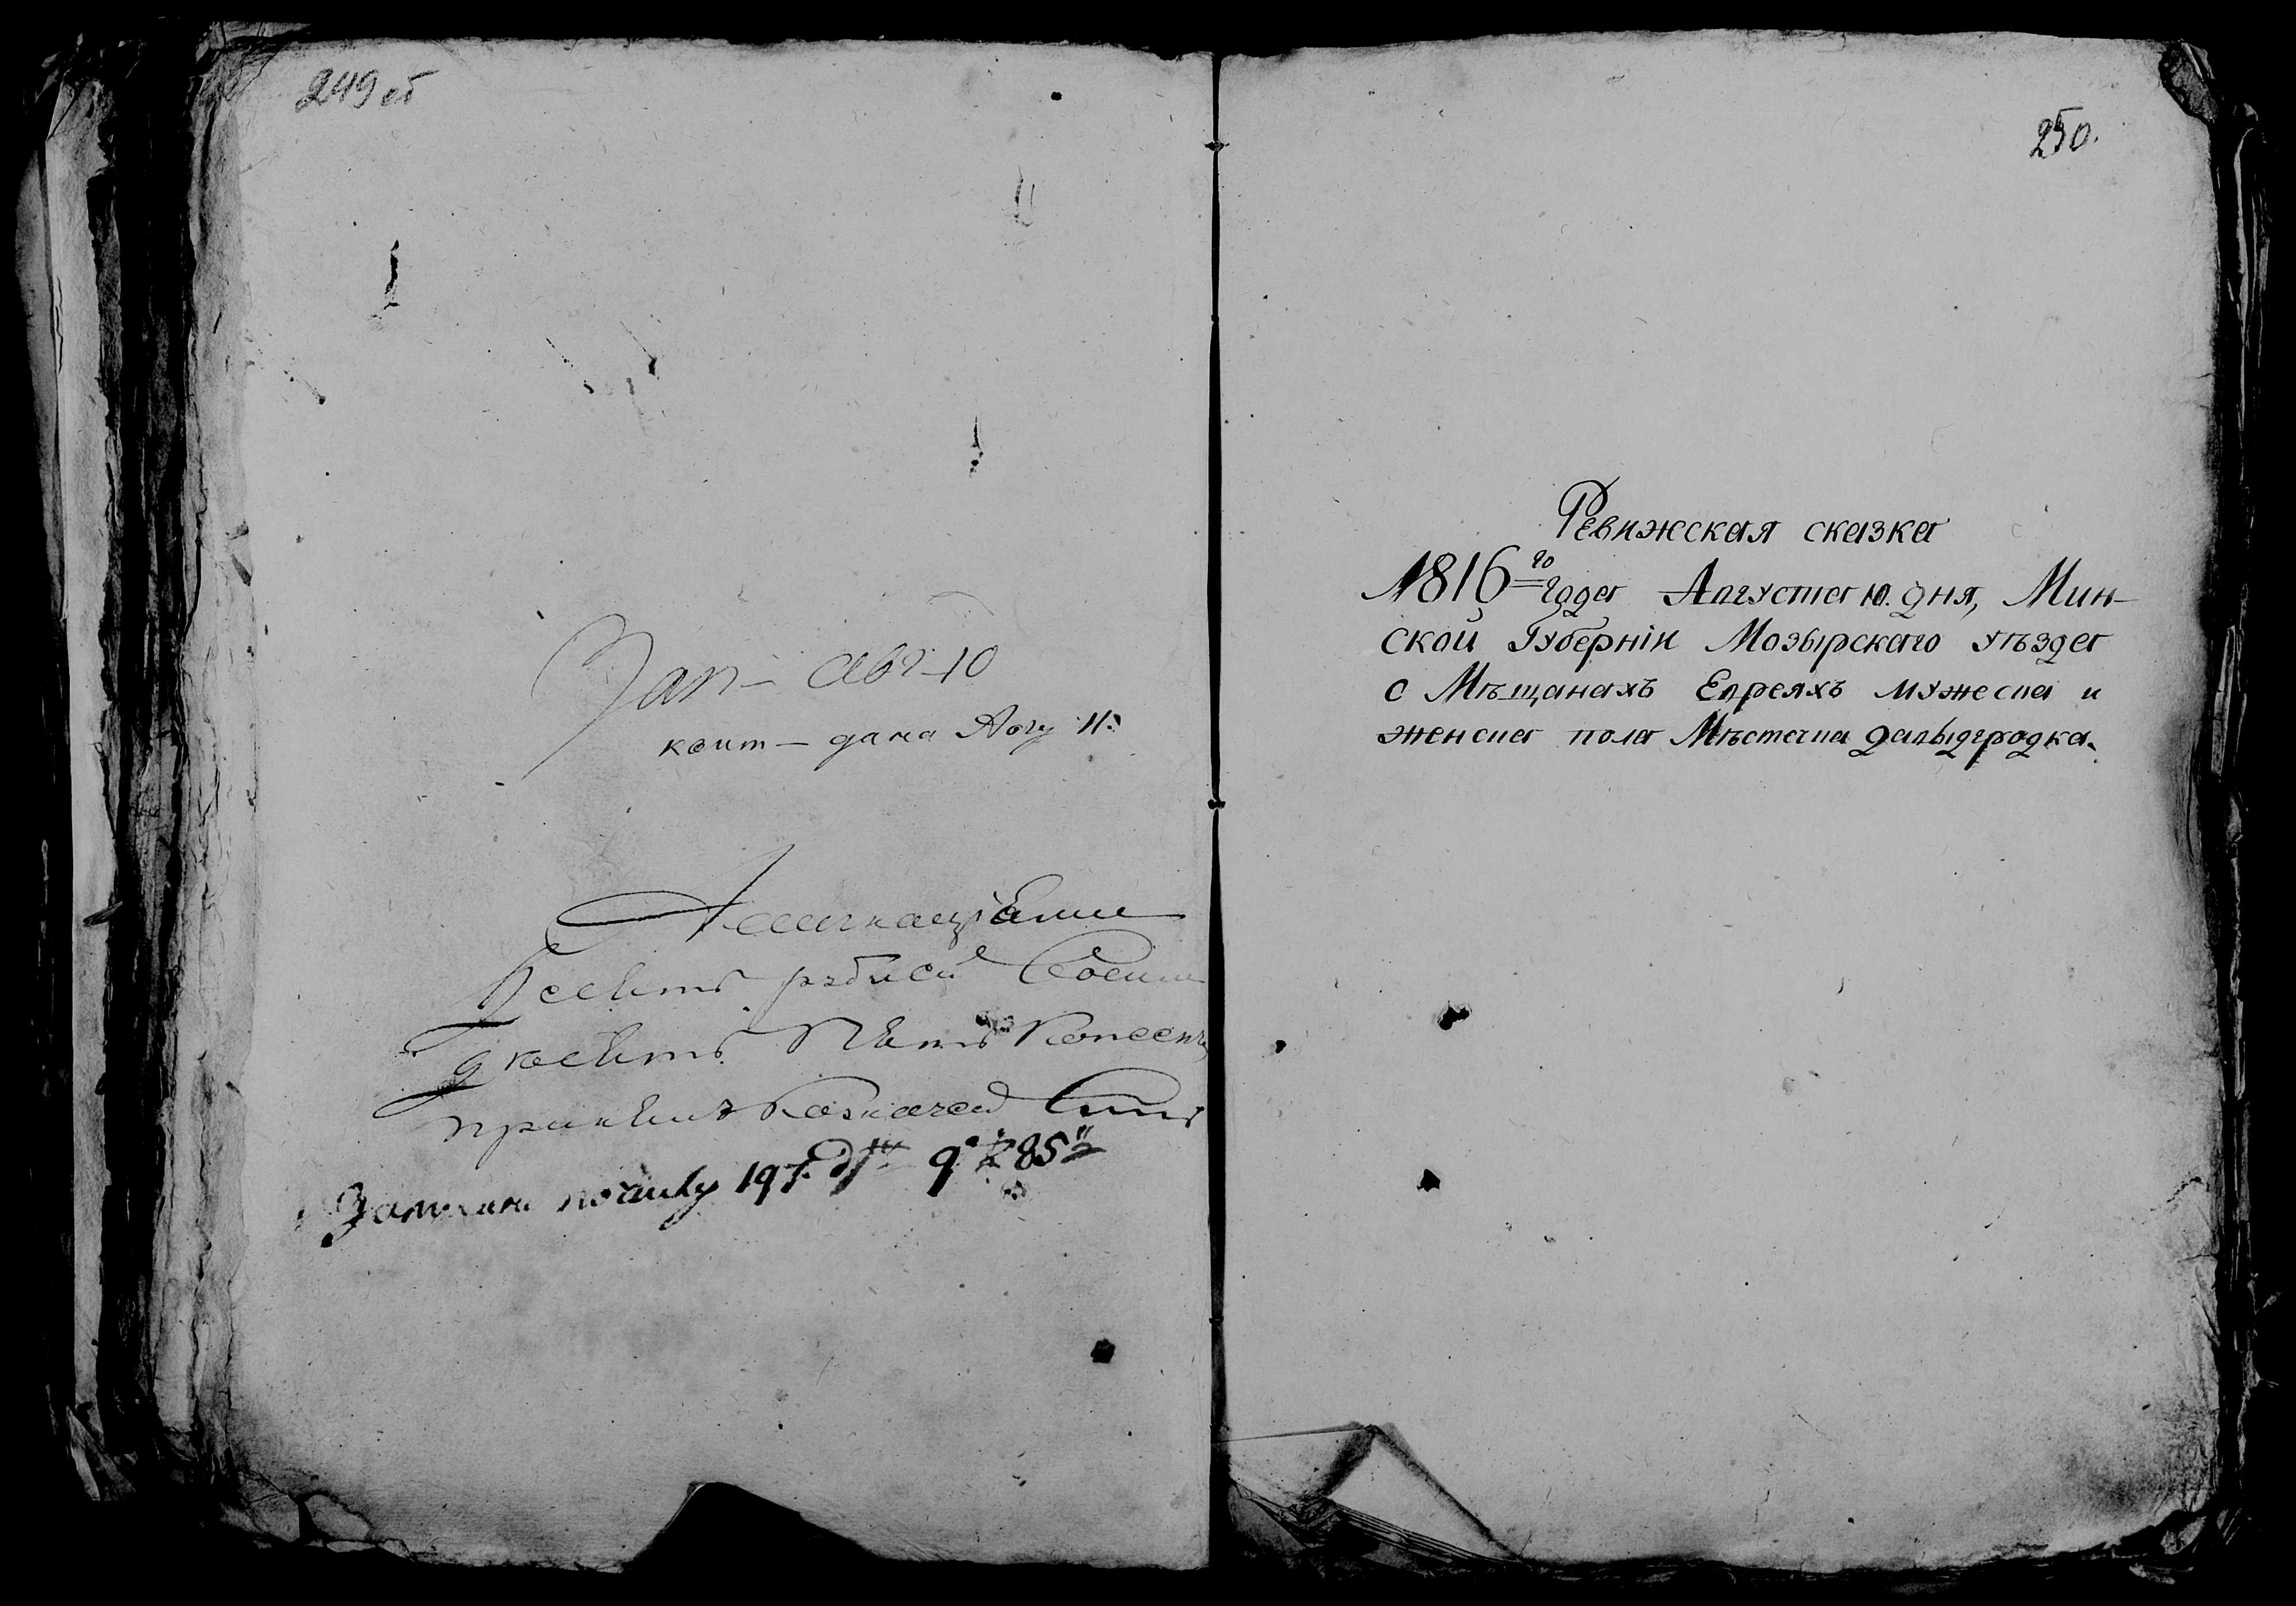 249 об
Зап— Авг 10
квит— дана Авгу 11:
Ассигнаціями
десять рублей восем
десять пять копеекъ
принялъ Казначей
Записана по 197. 9 285
250.
Ревижская сказка
1816=го года Августа 10. дня, Мин-
ской Губерніи Мозырскаго уѣзда
о Мѣщанахъ Евреяхъ мужеска и
женска пола Мѣстечка Давыдгродка.